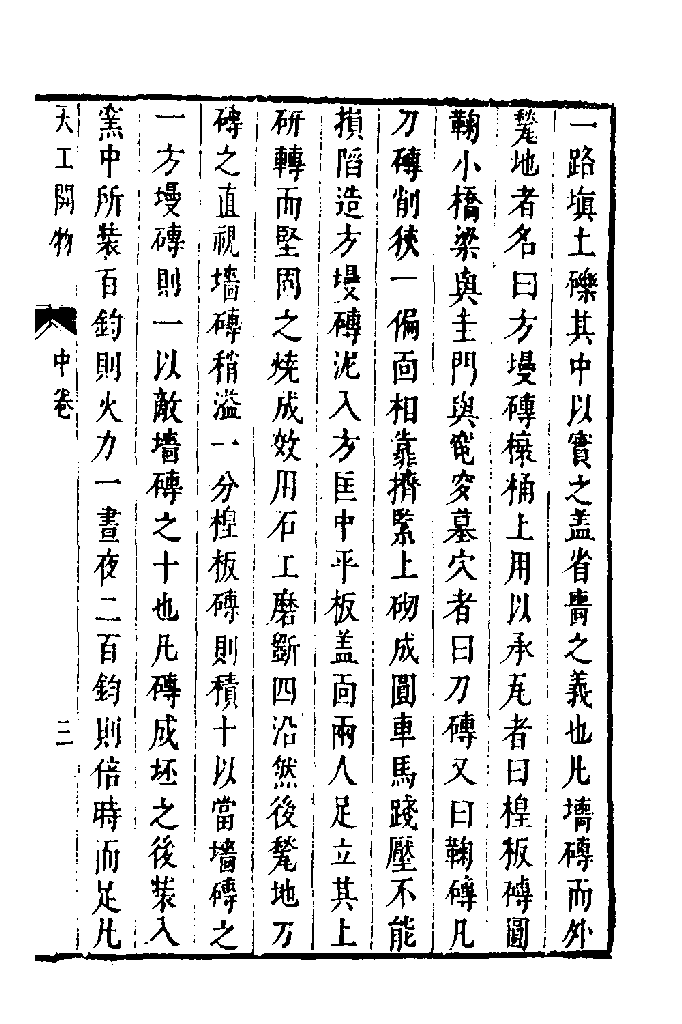 一路塡土礫其中以實之盖省嗇之義也凡墻磚而外
甃地者名曰方墁磚榱桷上用以承瓦者曰楻板磚圓
鞠小橋梁與圭門與窀穸墓穴者曰刀磚又曰鞠磚凡
刀磚削狹一偏面相靠擠緊上砌成圓車馬踐壓不能
損陷造方墁磚泥入方匡中平板盖面兩人足立其上
研轉而堅固之燒成效用石工磨斲四沿然後甃地刀
磚之直視墻磚稍溢一分楻板磚則積十以當墻磚之
一方墁磚則一以敵墻磚之十也凡磚成坯之後裝入
窯中所裝百鈞則火力一晝夜二百鈞則倍時而足凡
天工開物
中卷
三